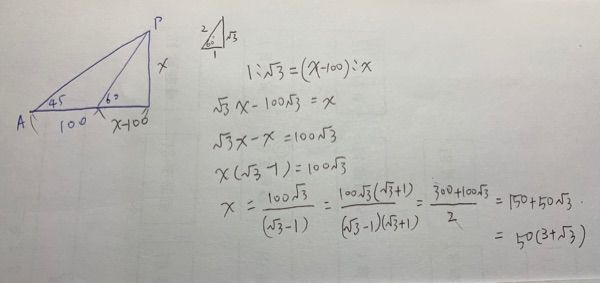 P
45
60
x
A
100
x-100
2
60°
√3
1
1:√3=(x-100):x
√3x-100√3=x
√3x-x=100√3
x(√3-1)=100√3
x = 100√3/(√3-1) = 100√3(√3+1)/(√3-1)(√3+1) = 300+100√3/2 = 150+50√3.
= 50(3+√3)